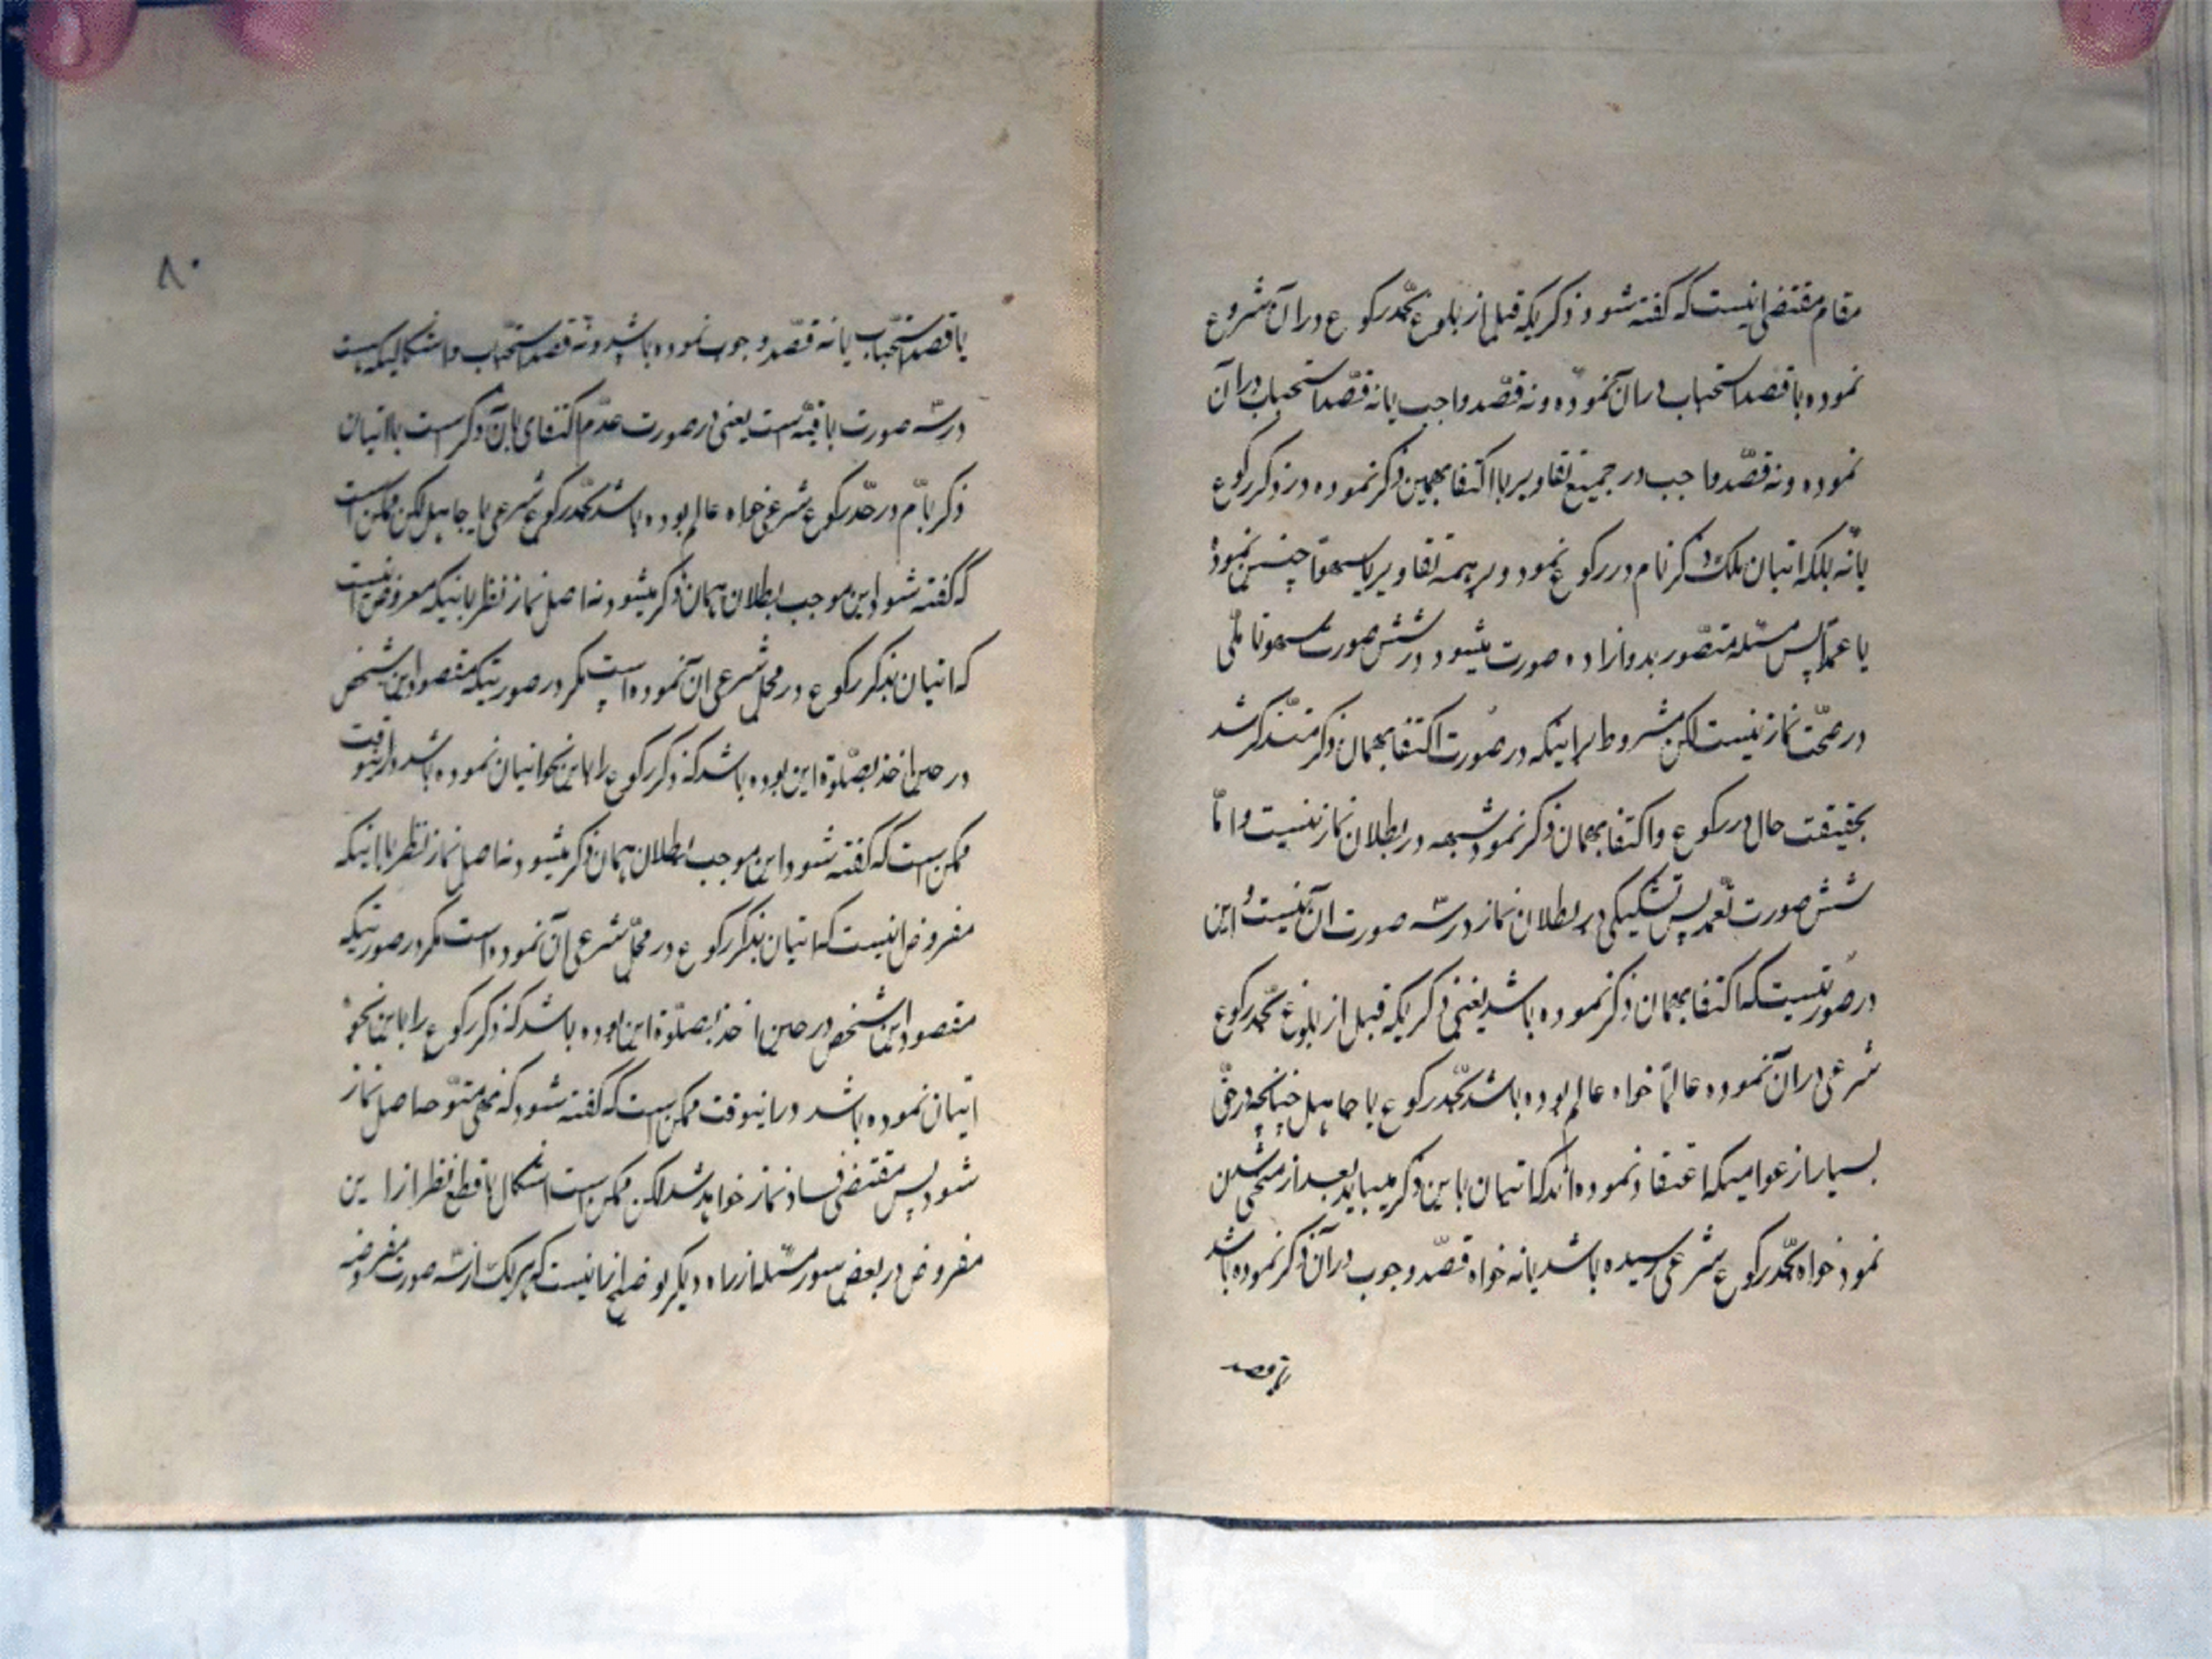 مقام مقتضی اینست که گفته شود ذکریکه قبل از بلوغ بحد رکوع در آن شروع
نموده یا قصد استحباب در آن نموده و نه قصد واجب یا نه قصد استحباب در آن
نموده و نه قصد واجب در جمیع تقادیر یا اکتفا بهمین ذکر نموده در ذکر رکوع
یا نه بلکه اتیان بلک ذکر تام در رکوع نمود و بر همه تقادیر یا سهوا چنین نموده
یا عمدا پس مسئله متصور بدوازده صورت میشود در شش صورت سهو تاملی
در صحت نماز نیست لکن مشروط براینکه در صورت اکتفا بهمان ذکر متذکر شد
بحقیقت حال در رکوع و اکتفا بهمان ذکر نمود شبهه در بطلان نماز نیست و اما
شش صورت تعمد پس تشکیکی در بطلان نماز در سه صورت آن نیست و این
در صورتیست که اکتفا بهمان ذکر نموده باشد یعنی ذکریکه قبل از بلوغ بحد رکوع
شرعی در آن نموده عالما خواه عالم بوده باشد بحد رکوع یا جاهل چنانچه در حق
بسیار از عوامیکه اعتقاد نموده‌اند که اتیان باین ذکر میباید بعد از منحنی شدن
نمود خواه بحد رکوع شرعی رسیده باشد یا نه خواه قصد وجوب در آن ذکر نموده باشد
یا قصد
۸۰
یا قصد استحباب یا نه قصد وجوب نموده باشد و نه قصد استحباب و اشکالیکه هست
در سه صورت باقیه است یعنی در صورت عدم اکتفای بآن ذکر است با اتیان
ذکر تام در حد رکوع شرعی خواه عالم بوده باشد بحد رکوع شرعی یا جاهل لکن ممکن است
که گفته شود این موجب بطلان همان ذکر میشود نه اصل نماز نظر باینکه مفروض اینست
که اتیان بذکر رکوع در محل شرعی آن نموده است مگر در صورتیکه مقصود این شخص
در حین اخذ بصلوة این بوده باشد که ذکر رکوع را باین نحو اتیان نموده باشد در اینوقت
ممکن است که گفته شود این موجب بطلان همان ذکر میشود نه اصل نماز نظر با اینکه
مفروض اینست که اتیان بذکر رکوع در محل شرعی آن نموده است مگر در صورتیکه
مقصود این شخص در حین اخذ بصلوة این بوده باشد که ذکر رکوع را باین نحو
اتیان نموده باشد در اینوقت ممکن است که گفته شود که نهی متوجه اصل نماز
شود پس مقتضی فساد نماز خواهد شد لکن ممکن است اشکال با قطع نظر از این
مفروض در بعض صور مسئله از راه دیگر توضیح اینست که هر یک از سه صورت مفروضه